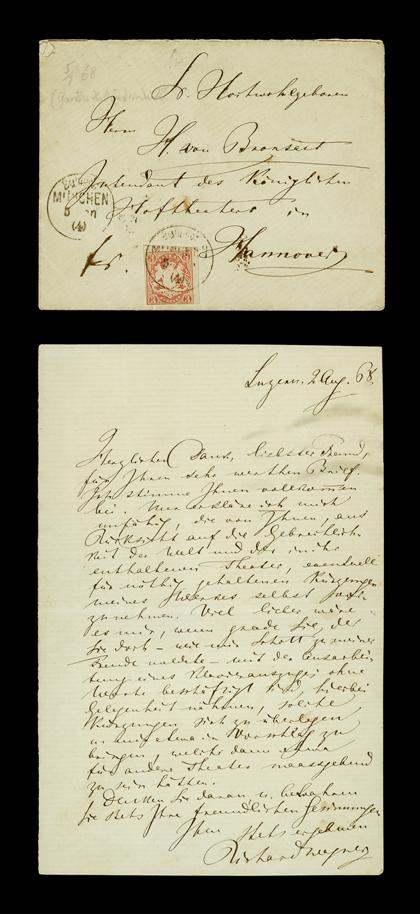 5/8 68
Sr. Hochwohlgeboren
Herrn
H. von Bronsart
Intendant des Königlichen
Hoftheaters in
Hannover
fr.
MÜNCHEN
5
(4)
3 3
Luzern, 2 Aug. 68.
Herzlichen Dank, liebster Freund,
für Ihren sehr werthen Brief.
Ich stimme Ihnen vollkommen
bei. Nur erkläre ich mich
unfähig, die von Ihnen, aus
Rücksicht auf die Gebrechlich-
keit der Welt und der in ihr
enthaltenen Theater, eventuell
für nöthig gehaltenen Kürzungen
meines Werkes selbst vor-
zunehmen. Viel lieber wäre
es mir, wenn grade Sie, der
Sie doch – wie mir Schott zu meiner
Freude meldete – mit der Ausarbei-
tung eines Klavierauszuges ohne
Worte beschäftigt sind, hierbei
Gelegenheit nähmen, solche
Kürzungen sich zu überlegen
u. mir etwa in Vorschlag zu
bringen, welche dann
für andere Theater maassgebend
zu sein hätten.
Denken Sie daran u. bewahren
Sie stets Ihre freundlichen Gesinnungen
Ihrem stets ergebenen
Richard Wagner